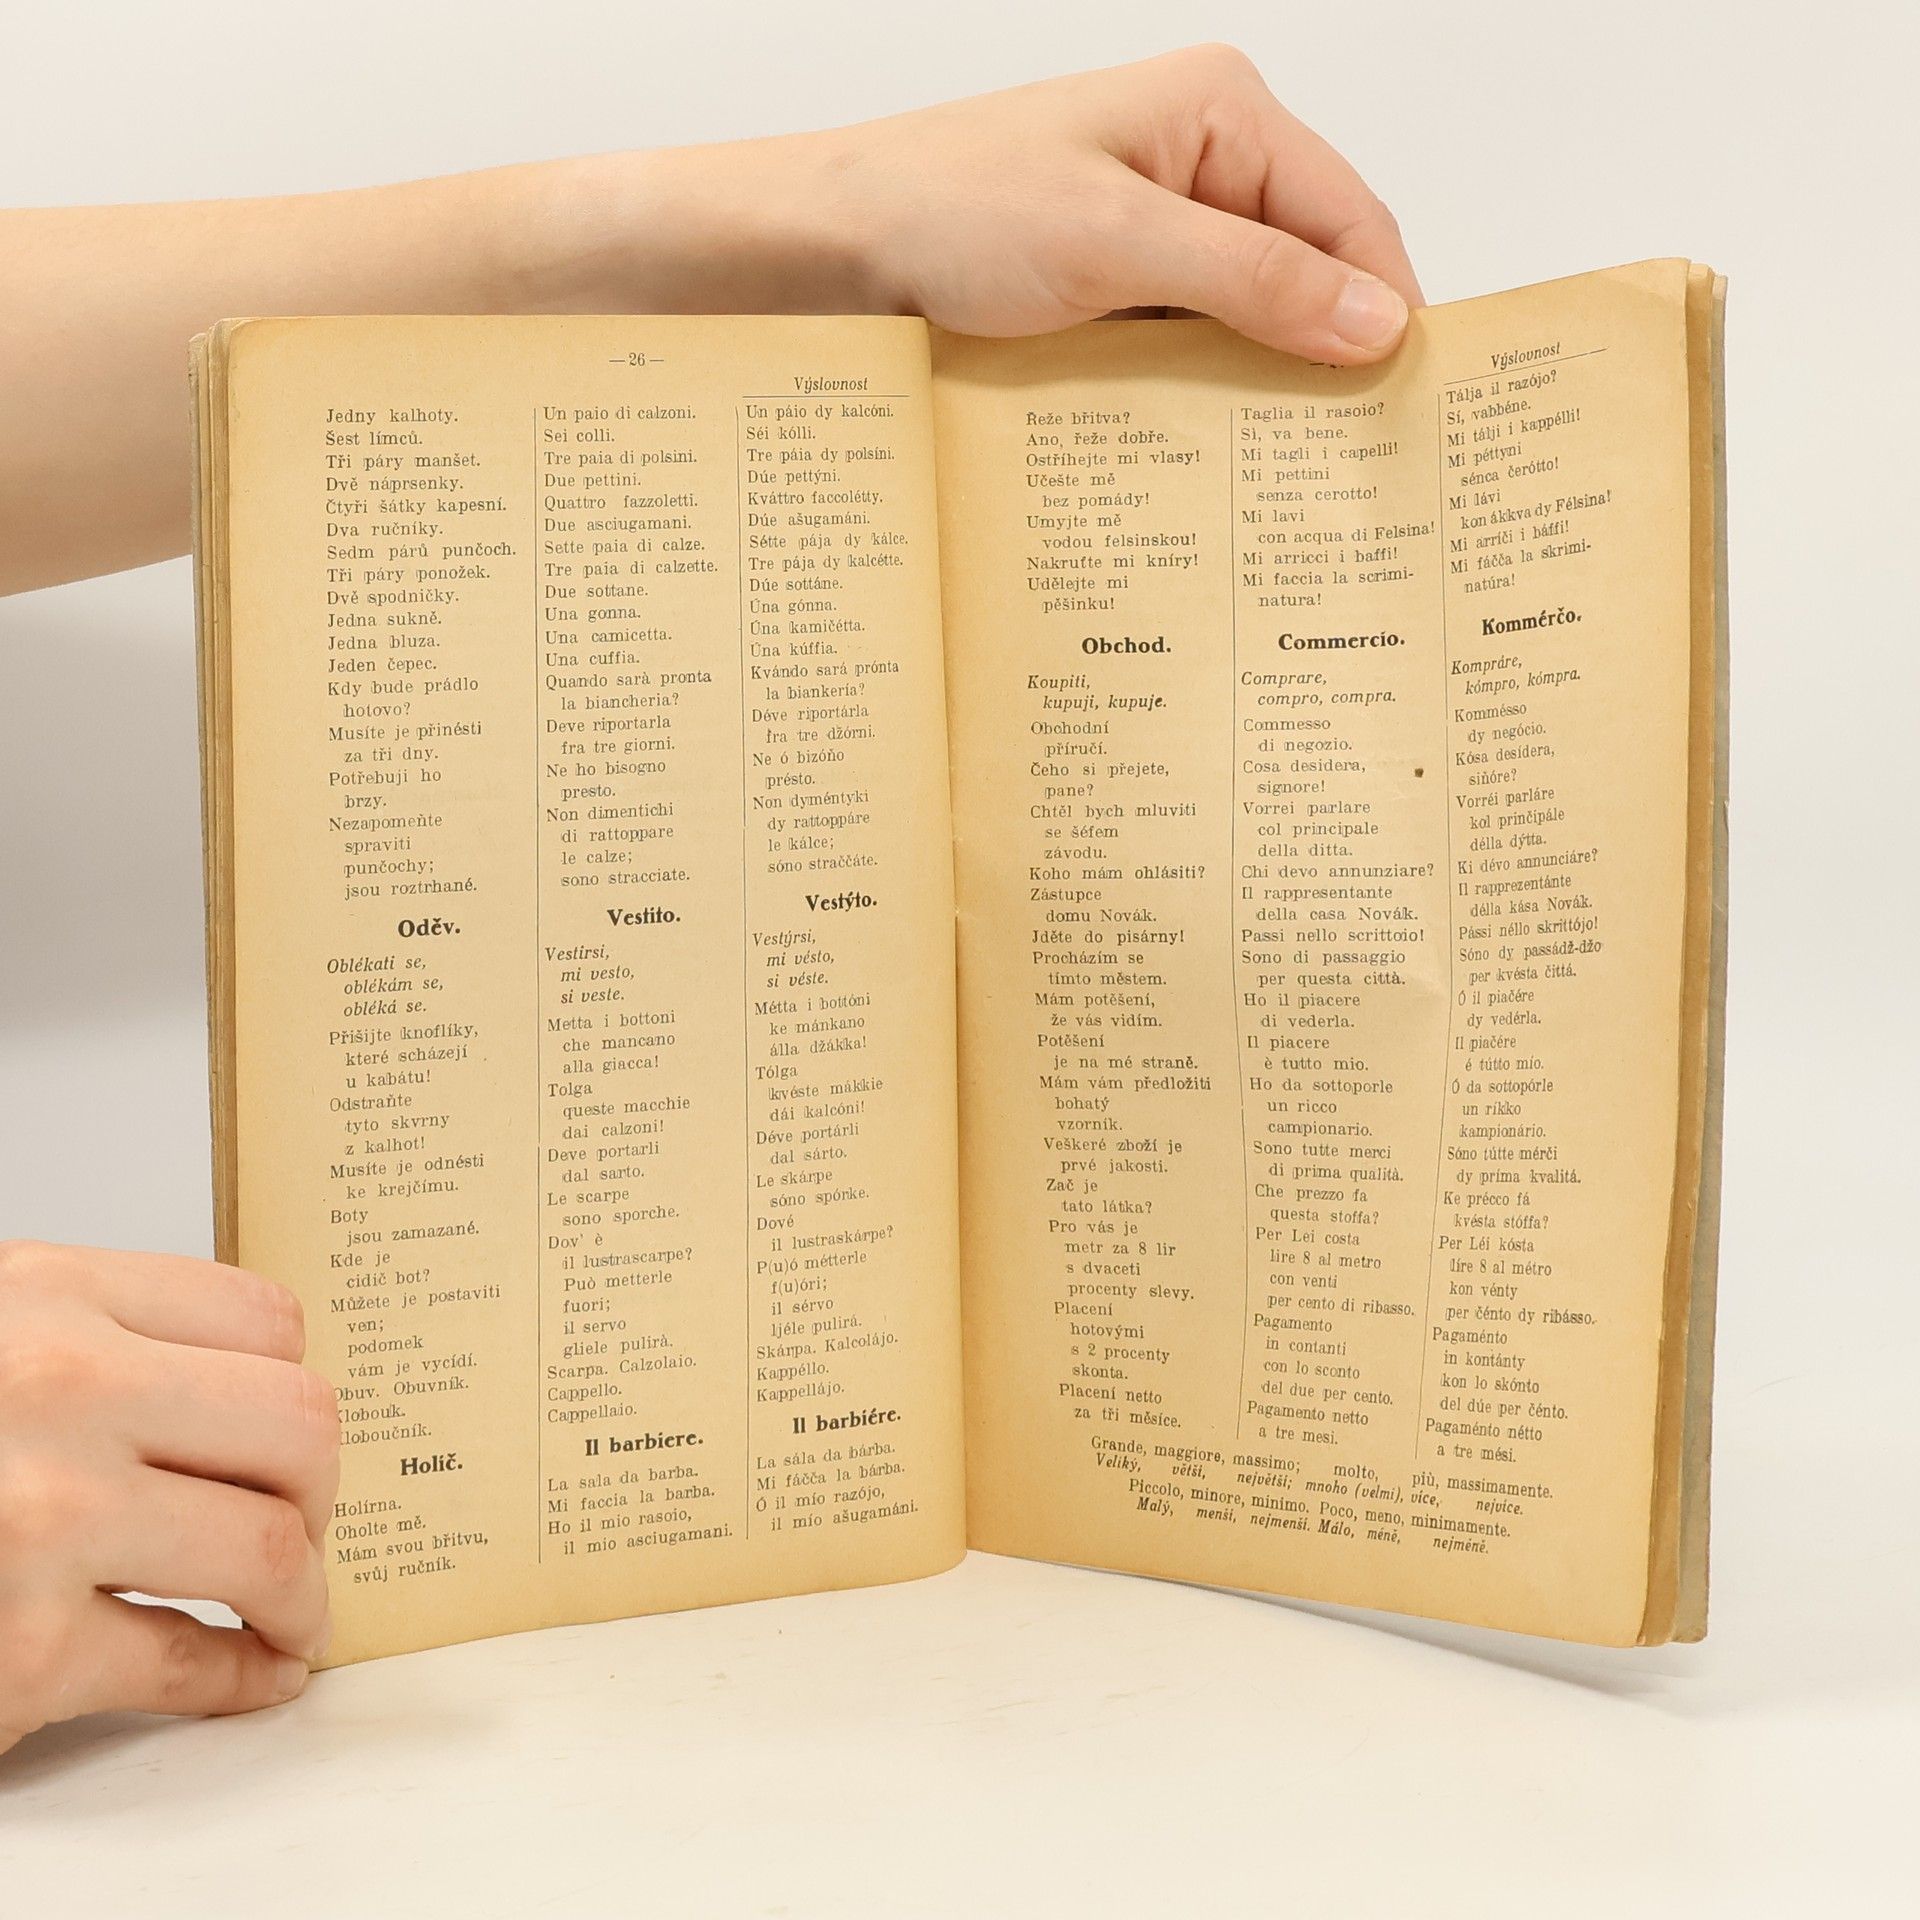 —26—
Výslovnost
Jedny kalhoty.
Šest límců.
Tři páry manšet.
Dvě náprsenky.
Čtyři šátky kapesní.
Dva ručníky.
Sedm párů punčoch.
Tři páry ponožek.
Dvě spodničky.
Jedna sukně.
Jedna bluza.
Jeden čepec.
Kdy bude prádlo
hotovo?
Musíte je přinésti
za tři dny.
Potřebuji ho
brzy.
Nezapomeňte
spraviti
punčochy;
jsou roztrhané.
Oděv.
Oblékati se,
oblékám se,
obléká se.
Přišijte knoflíky,
které scházejí
u kabátu!
Odstraňte
tyto skvrny
z kalhot!
Musíte je odnésti
ke krejčímu.
Boty
jsou zamazané.
Kde je
cidič bot?
Můžete je postaviti
ven;
podomek
vám je vycídí.
Obuv. Obuvník.
Klobouk.
Kloboučník.
Holič.
Holírna.
Oholte mě.
Mám svou břitvu,
svůj ručník.
Un paio di calzoni.
Sei colli.
Tre paia di polsini.
Due pettini.
Quattro fazzoletti.
Due asciugamani.
Sette paia di calze.
Tre paia di calzette.
Due sottane.
Una gonna.
Una camicetta.
Una cuffia.
Quando sarà pronta
la biancheria?
Deve riportarla
fra tre giorni.
Ne ho bisogno
presto.
Non dimentichi
di rattoppare
le calze;
sono stracciate.
Vestito.
Vestirsi,
mi vesto,
si veste.
Metta i bottoni
che mancano
alla giacca!
Tolga
queste macchie
dai calzoni!
Deve portarli
dal sarto.
Le scarpe
sono sporche.
Dov' è
il lustrascarpe?
Può metterle
fuori;
il servo
gliele pulirà.
Scarpa. Calzolaio.
Cappello.
Cappellaio.
Il barbiere.
La sala da barba.
Mi faccia la barba.
Ho il mio rasoio,
il mio asciugamani.
Un páio dy kalcóni.
Séi kólli.
Tre páia dy polsíni.
Dúe pettýni.
Kváttro faccolétty.
Dúe ašugamáni.
Sétte pája dy kálce.
Tre pája dy kalcétte.
Dúe sottáne.
Úna gónna.
Úna kamičétta.
Úna kúffia.
Kvándo sará prónta
la biankería?
Déve riportárla
fra tre džórni.
Ne ó bizóňo
présto.
Non dyméntyki
dy rattoppáre
le kálce;
sóno straččáte.
Vestýto.
Vestýrsi,
mi vésto,
si véste.
Métta i bottóni
ke mánkano
álla džákka!
Tólga
kvéste mákkie
dái kalcóni!
Déve portárli
dal sárto.
Le skárpe
sóno spórke.
Dové
il lustraskárpe?
P(u)ó métterle
f(u)óri;
il sérvo
ljéle pulirá.
Skárpa. Kalcolájo.
Kappéllo.
Kappellájo.
Il barbiére.
La sála da bárba.
Mi fáčča la bárba.
Ó il mío razójo,
il mío ašugamáni.
Výslovnost
Řeže břitva?
Ano, řeže dobře.
Ostříhejte mi vlasy!
Učešte mě
bez pomády!
Umyjte mě
vodou felsinskou!
Nakruťte mi kníry!
Udělejte mi
pěšinku!
Obchod.
Koupiti,
kupuji, kupuje.
Obchodní
příručí.
Čeho si přejete,
pane?
Chtěl bych mluviti
se šéfem
závodu.
Koho mám ohlásiti?
Zástupce
domu Novák.
Jděte do pisárny!
Procházím se
tímto městem.
Mám potěšení,
že vás vidím.
Potěšení
je na mé straně.
Mám vám předložiti
bohatý
vzorník.
Veškeré zboží je
prvé jakosti.
Zač je
tato látka?
Pro vás je
metr za 8 lir
s dvaceti
procenty slevy.
Placení
hotovými
s 2 procenty
skonta.
Placení netto
za tři měsíce.
Taglia il rasoio?
Sì, va bene.
Mi tagli i capelli!
Mi pettini
senza cerotto!
Mi lavi
con acqua di Felsina!
Mi arricci i baffi!
Mi faccia la scrimi-
natura!
Commercio.
Comprare,
compro, compra.
Commesso
di negozio.
Cosa desidera,
signore!
Vorrei parlare
col principale
della ditta.
Chi devo annunziare?
Il rappresentante
della casa Novák.
Passi nello scrittoio!
Sono di passaggio
per questa città.
Ho il piacere
di vederla.
Il piacere
è tutto mio.
Ho da sottoporle
un ricco
campionario.
Sono tutte merci
di prima qualità.
Che prezzo fa
questa stoffa?
Per Lei costa
lire 8 al metro
con venti
per cento di ribasso.
Pagamento
in contanti
con lo sconto
del due per cento.
Pagamento netto
a tre mesi.
Tálja il razójo?
Sí, vabbéne.
Mi tálji i kappélli!
Mi péttyni
sénca čerótto!
Mi lávi
kon ákkva dy Félsina!
Mi arríči i báffi!
Mi fáčča la skrimi-
natúra!
Kommérčo.
Kompráre,
kómpro, kómpra.
Kommésso
dy negócio.
Kósa desídera,
siňóre?
Vorréi parláre
kol prinčipále
délla dýtta.
Ki dévo annunciáre?
Il rapprezentánte
délla kása Novák.
Pássi néllo skrittójo!
Sóno dy passádž-džo
per kvésta čittá.
Ó il piačére
dy vedérla.
Il piačére
é tútto mío.
Ó da sottopórle
un ríkko
kampionário.
Sóno tútte mérči
dy príma kvalitá.
Ke précco fá
kvésta stóffa?
Per Léi kósta
líre 8 al métro
kon vénty
per čénto dy ribásso.
Pagaménto
in kontánty
kon lo skónto
del dúe per čénto.
Pagaménto nétto
a tre mési.
Grande, maggiore, massimo; molto, più, massimamente.
Veliký, větší, největší; mnoho (velmi), více, nejvíce.
Piccolo, minore, minimo. Poco, meno, minimamente.
Malý, menší, nejmenší. Málo, méně, nejméně.